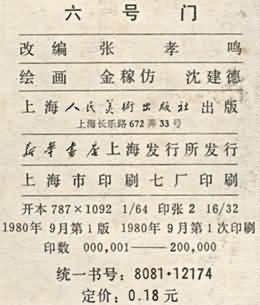 六号门
改编 张孝鸣
绘画 金稼仿 沈建德
上海人民美術出版社 出版
上海长乐路 672 弄 33 号
新华書店上海发行所发行
上海市印刷七厂印刷
开本 787×1092 1/64 印张 2 16/32
1980年 9月第1版 1980年 9月第1次印刷
印数 000,001——200,000
统一书号：8081·12174
定价：0.18元